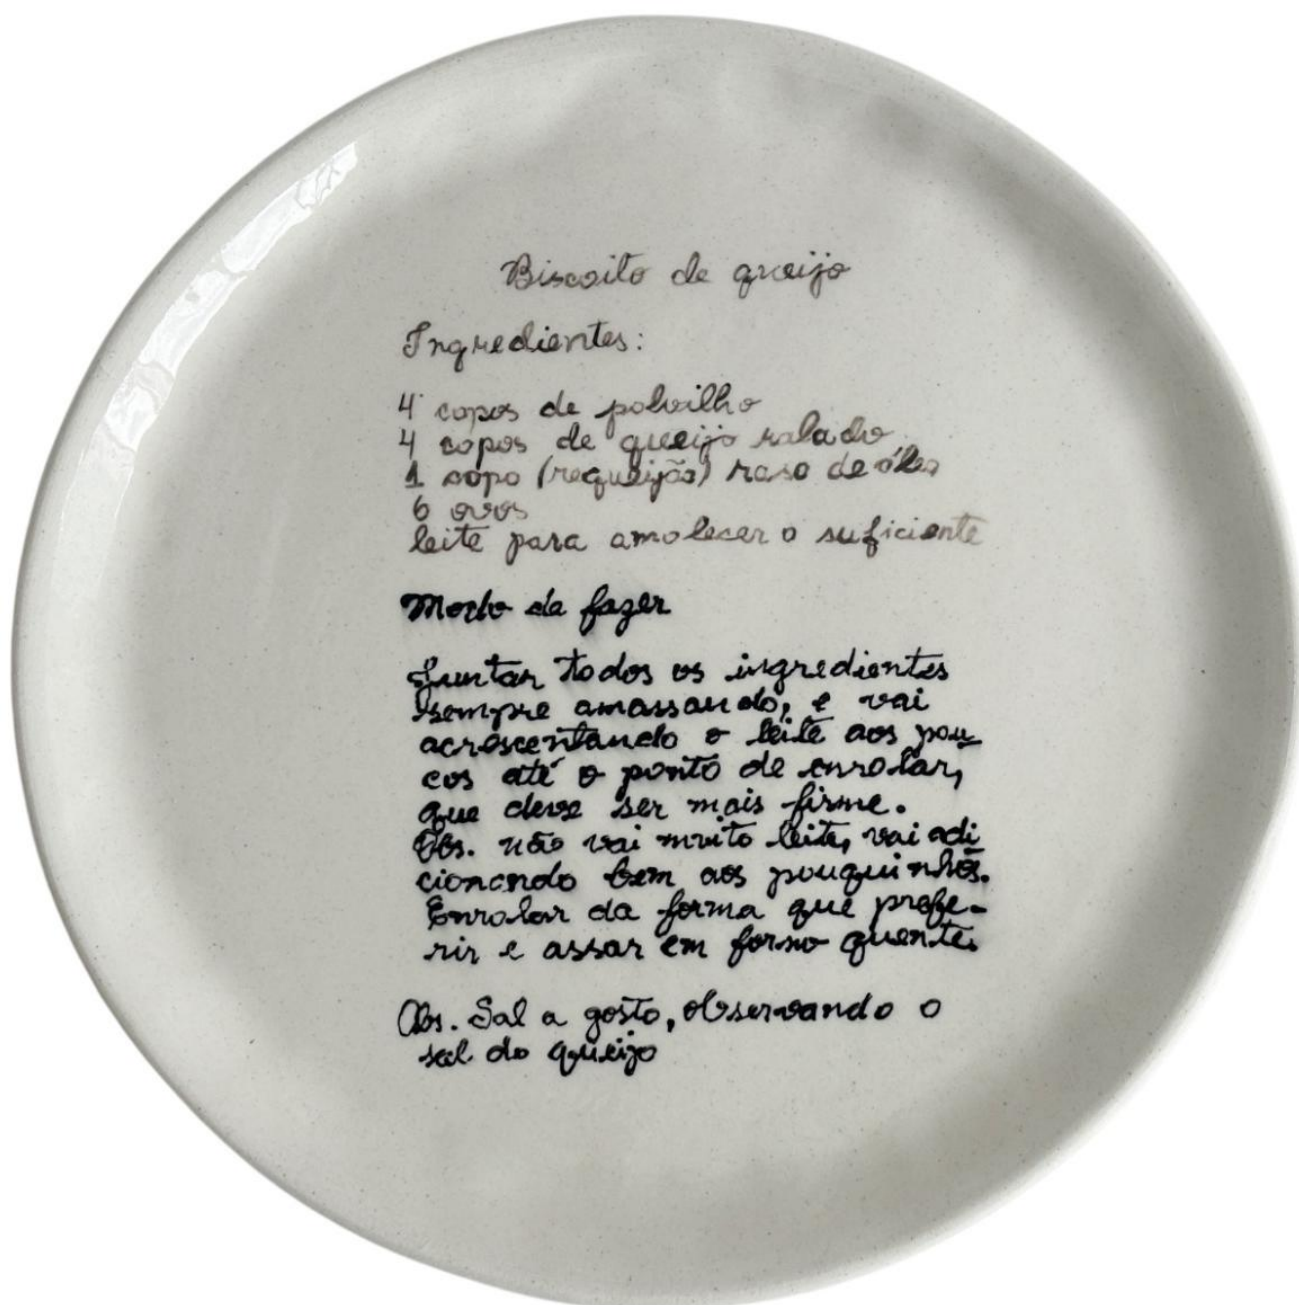 Biscoito de queijo
Ingredientes:
4 copos de polvilho
4 copos de queijo ralado
1 copo (requeijão) raso de óleo
6 ovos
leite para amolecer o suficiente
Modo de fazer
Juntar todos os ingredientes
sempre amassando, e vai
acrescentando o leite aos pou
cos até o ponto de enrolar,
que deve ser mais firme.
Obs. não vai muito leite, vai adi
cionando bem aos pouquinhos.
Enrolar da forma que prefe-
rir e assar em forno quente.
Obs. Sal a gosto, observando o
sal do queijo